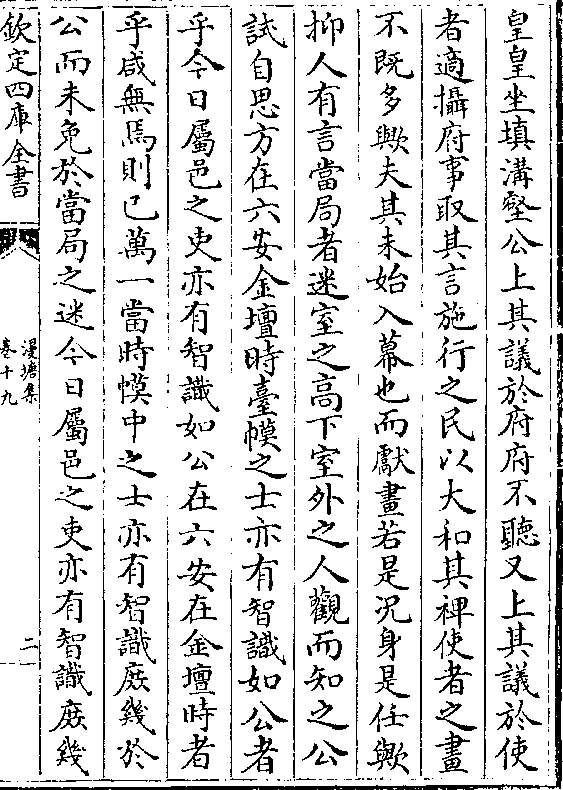 皇皇坐填溝壑公上其議於府府不聽又上其議於使
者適攝府事取其言施行之民以大和其裨使者之畫
不既多歟夫其未始入幕也而獻畫若是況身是任歟
抑人有言當局者迷室之高下室外之人觀而知之公
試自思方在六安金壇時臺幙之士亦有智識如公者
乎今日屬邑之吏亦有智識如公在六安在金壇時者
乎咸無焉則已萬一當時幙中之士亦有智識庶幾於
公而未免於當局之迷今日屬邑之吏亦有智識庶幾
欽定四庫全書
漫塘集
卷十九
二